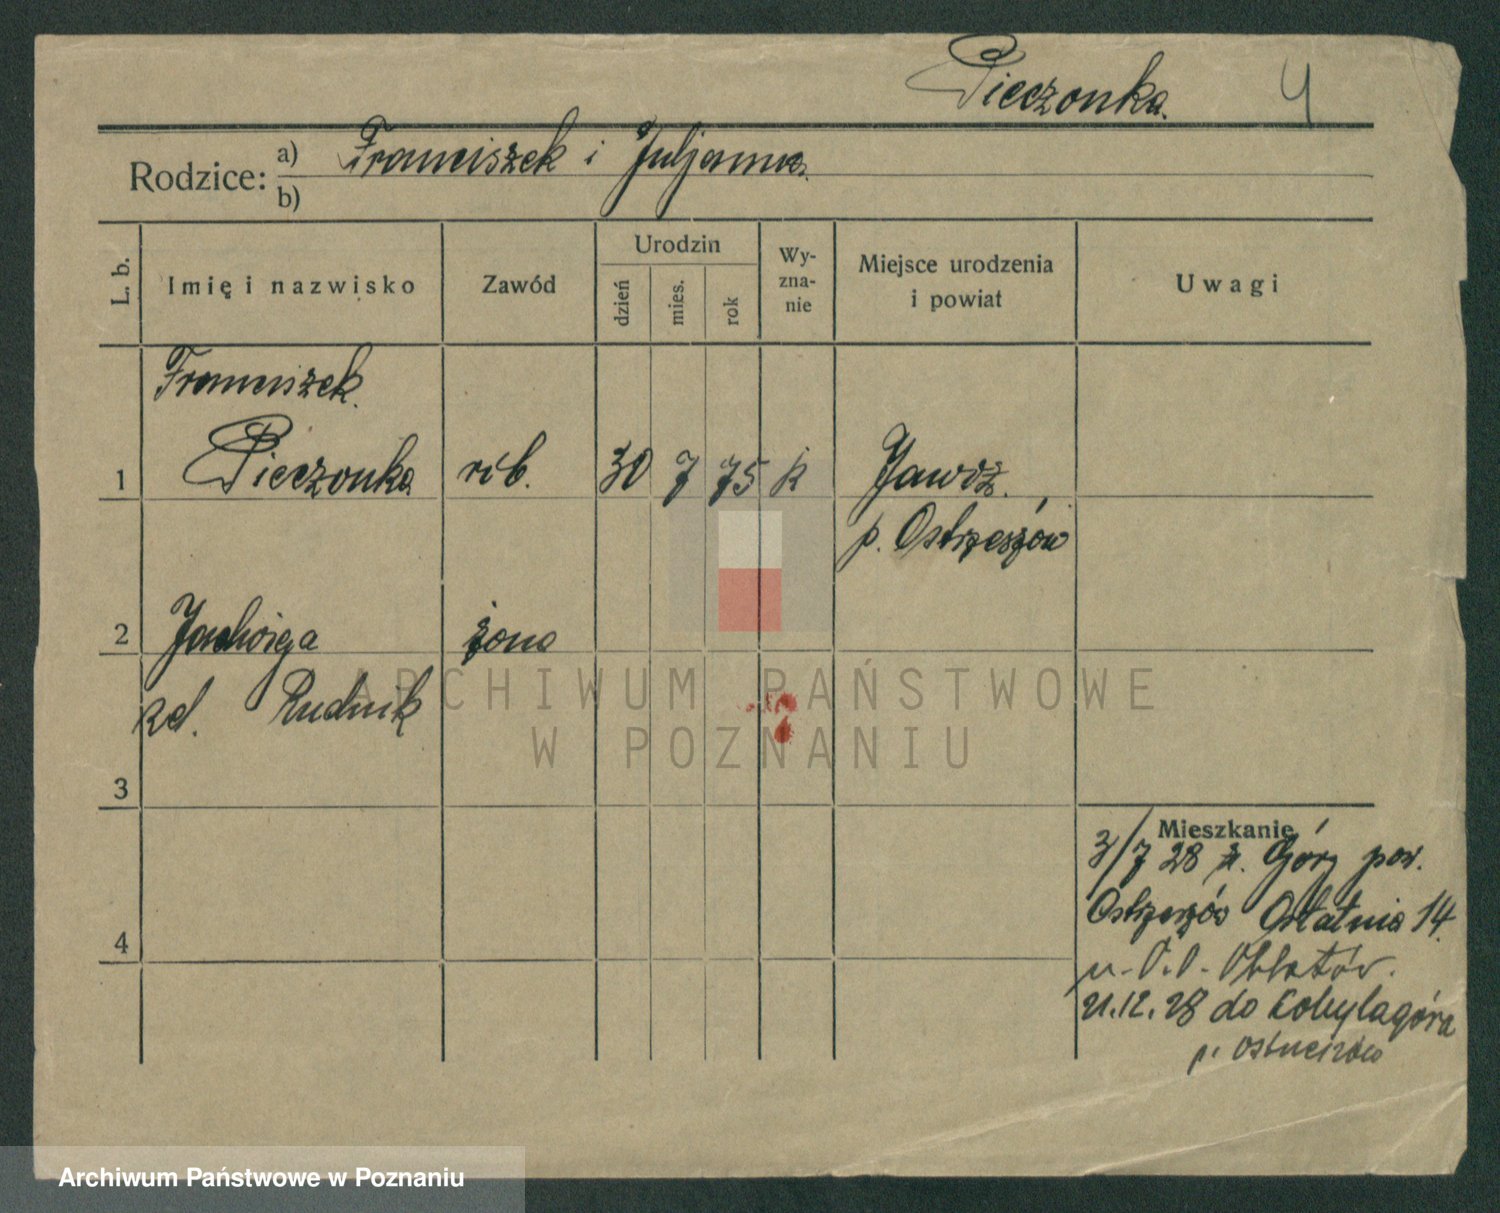 Pieczonka. 4
Rodzice: a) Franciszek i Juljanna.
b)
L. b. Imię i nazwisko Zawód Urodzin dzień mies. rok Wy-zna-nie Miejsce urodzenia i powiat Uwagi
Franciszek
1 Pieczonka rob. 30 7 75 k Jawor.
p. Ostrzeszów
2 Jadwiga żona
zd. Rudnik
3
4
Mieszkanie
3/7 28 z. Góry pow.
Ostrzeszów Ostatnia 14.
u. O.O. Oblatów.
21.12.28 do Kobylagóra
p. Ostrzeszów
ARCHIWUM PAŃSTWOWE
W POZNANIU
Archiwum Państwowe w Poznaniu